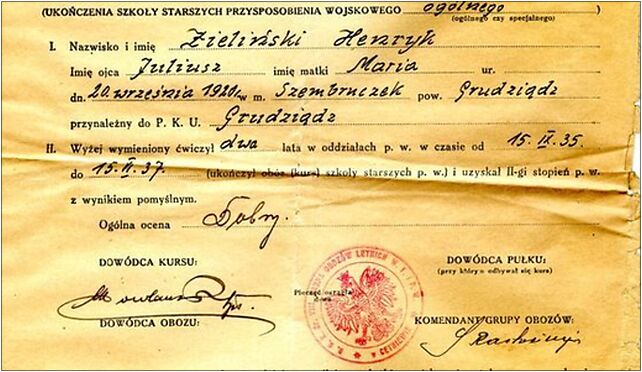 (UKOŃCZENIA SZKOŁY STARSZYCH PRZYSPOSOBIENIA WOJSKOWEGO ogólnego)
(ogólnego czy specjalnego)
I. Nazwisko i imię Zieliński Henryk
Imię ojca Juliusz imię matki Maria ur.
dn. 20 września 1920 r. w m. Szembruczek pow. Grudziądz
przynależny do P. K. U. Grudziądz
II. Wyżej wymieniony ćwiczył dwa lata w oddziałach p. w. w czasie od 15. IX. 35.
do 15. II. 37. (ukończył obóz (kurs) szkoły starszych p. w.) i uzyskał II-gi stopień p. w.
z wynikiem pomyślnym.
Ogólna ocena Dobry.
DOWÓDCA KURSU:
DOWÓDCA PUŁKU:
(przy którym odbywał się kurs)
Pieczęć okrągła
OBOZÓW LETNICH W. F. i P. W.
DOWÓDCA OBOZU:
KOMENDANT GRUPY OBOZÓW: